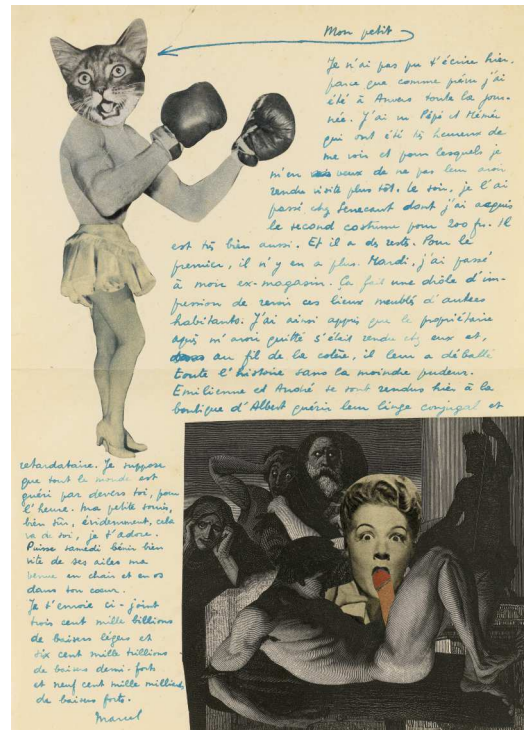 Mon petit
Je n'ai pas pu t'écrire hier.
parce que comme prévu j'ai
été à Anvers toute la jour-
née. J'ai vu Pépé et Mémé
qui ont été très heureux de
me voir et pour lesquels je
m'en veux de ne pas leur avoir
rendu visite plus tôt. Le soir, je l'ai
passé chez Senecaut dont j'ai acquis
le second costume pour 200 frs. Il
est très bien aussi. Et il a ds reste. Pour le
premier, il n'y en a plus. Mardi, j'ai passé
à mon ex-magasin. Ça fait une drôle d'im-
pression de revoir ces lieux meublés d'autres
habitants. J'ai ainsi appris que le propriétaire
après m'avoir quitté s'était rendu chez eux et,
au fil de la colère, il leur a déballé
toute l'histoire sans la moindre pudeur.
Emilienne et André se sont rendus hier à la
boutique d'Albert quérir leur linge conjugal et
retardataire. Je suppose
que tout le monde est
guéri par devers toi, pour
l'heure. Ma petite souris,
bien sûr, évidemment, cela
va de soi, je t'adore.
Puisse samedi bénir bien
vite de ses ailes ma
venue en chair et en os
dans ton cœur.
Je t'envoie ci-joint
trois cent mille billions
de baisers légers et
six cent mille trillions
de baisers demi-forts
et neuf cent mille milliards
de baisers forts.
Marcel